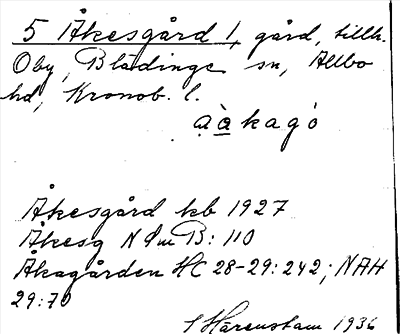 5 Åkesgård 1, gård, tillh.
Oby, Blädinge sn, Allbo
hd, Kronob. l.
a̱à̱kagó
Åkesgård kb 1927
Åkesg N Sm B: 110
Åkagården HC 28-29: 242; NAH
29:70
S Harenstam 1936